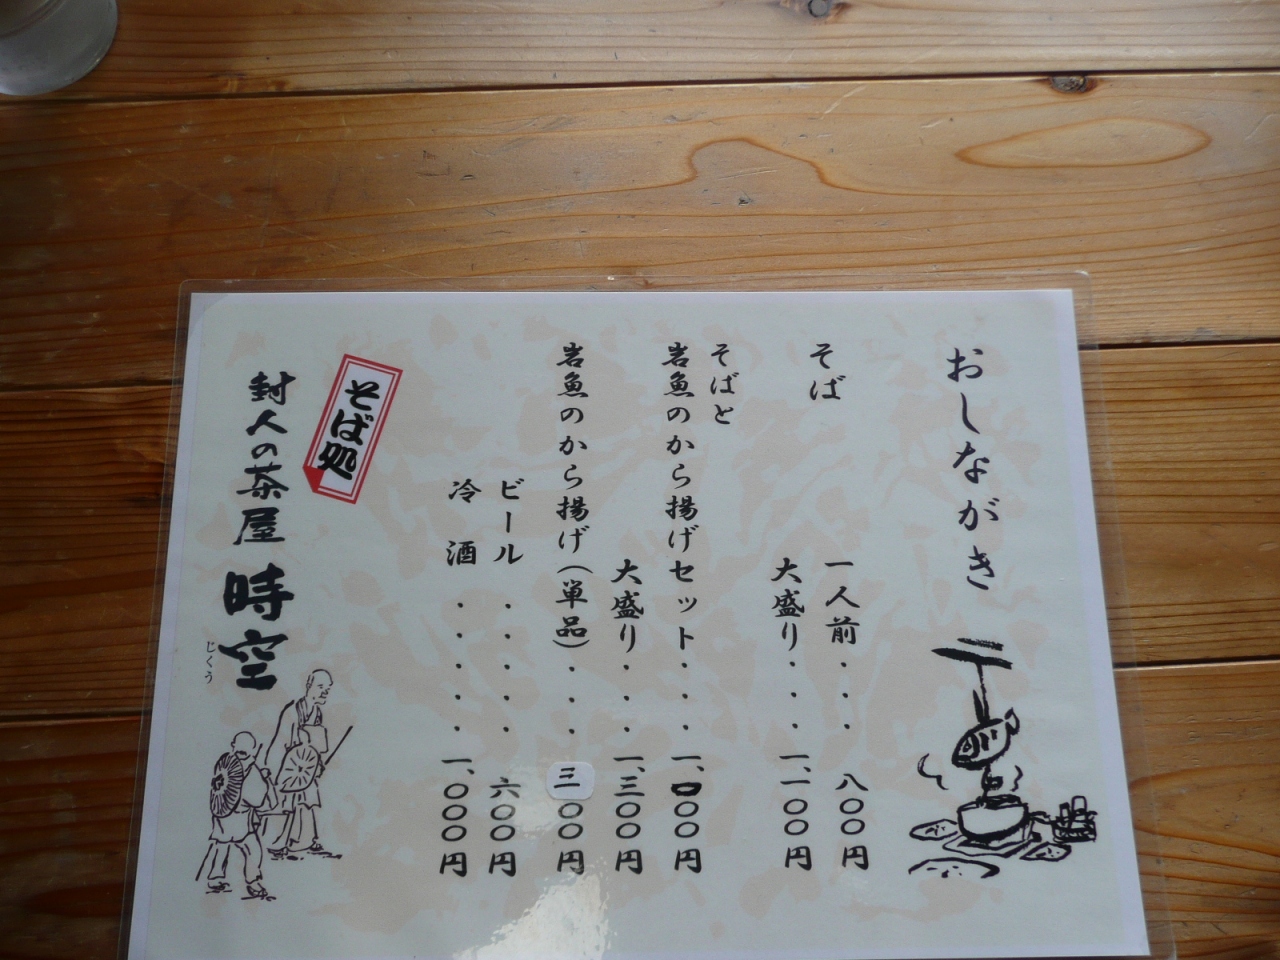 おしながき
そば
一人前・・・八〇〇円
大盛り・・・一、一〇〇円
そばと
岩魚のから揚げセット・・・一、〇〇〇円
大盛り・・・一、三〇〇円
岩魚のから揚げ（単品）・・・三〇〇円
ビール・・・・・六〇〇円
冷酒・・・・・一、〇〇〇円
そば処
封人の茶屋 時空
じくう